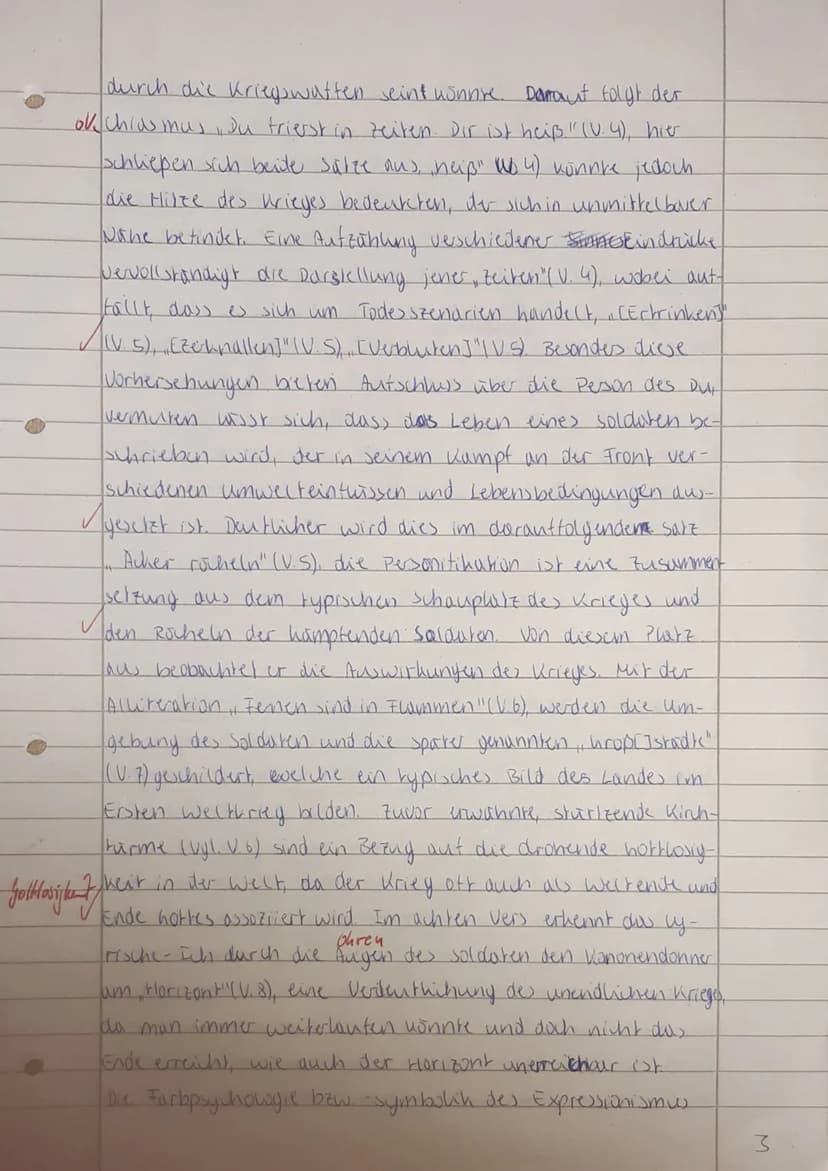 durch die Kriegswaffen seint könnte. Darauf folgt der
ok. Chiasmus „Du frierst in Zeiten. Dir ist heiß." (V. 4), hier
schließen sich beide Sätze aus, „heiß" (V. 4) könnte jedoch
die Hitze des Krieges bedeuteten, der sich in unmittelbarer
Nähe befindet. Eine Aufzählung verschiedener Eindrücke
vervollständigt die Darstellung jener „Zeiten" (V. 4), wobei auf-
fällt, dass es sich um Todesszenarien handelt, „[Ertrinken]"
(V. 5), „[Zerknallen]" (V. 5), „[Verbluten]" (V 5). Besondes diese
Vorhersehungen bieten Aufschluss über die Person des Du,
vermuten lässt sich, dass das Leben eines Soldaten be-
schrieben wird, der in seinem Kampf an der Front ver-
schiedenen Umwelteinflüssen und Lebensbedingungen aus-
gesetzt ist. Deutlicher wird dies im darauffolgendem Satz
„Äcker röcheln" (V. 5), die Personifikation ist eine Zusammen-
setzung aus dem typischen Schauplatz des Krieges und
den Röcheln der kämpfenden Soldaten. Von diesem Platz
aus beobachtet er die Auswirkungen des Krieges. Mit der
Alliteration „Fernen sind in Flammen" (V. 6), werden die Um-
gebung des Soldaten und die später genannten „Groß[]städte"
(V. 7) geschildert, welche ein typisches Bild des Landes im
Ersten Weltkrieg bilden. Zuvor erwähnte, stürtzende Kirch-
türme (vgl. V. 6) sind ein Bezug auf die drohende Gottlosig-
Gottlosigkeit? keit in der Welt, da der Krieg oft auch als Weltende und
Ende Gottes assoziiert wird. Im achten Vers erkennt das ly-
Ohren
rische-Ich durch die Augen des Soldaten den Kanonendonner
am „Horizont" (V. 8), eine Verdeutlichung des unendlichen Kriegs,
da man immer weiterlaufen könnte und doch nicht das
Ende erreicht, wie auch der Horizont unerreichbar ist.
Die Farbpsychologie bzw. -symbolik des Expressionismus
3